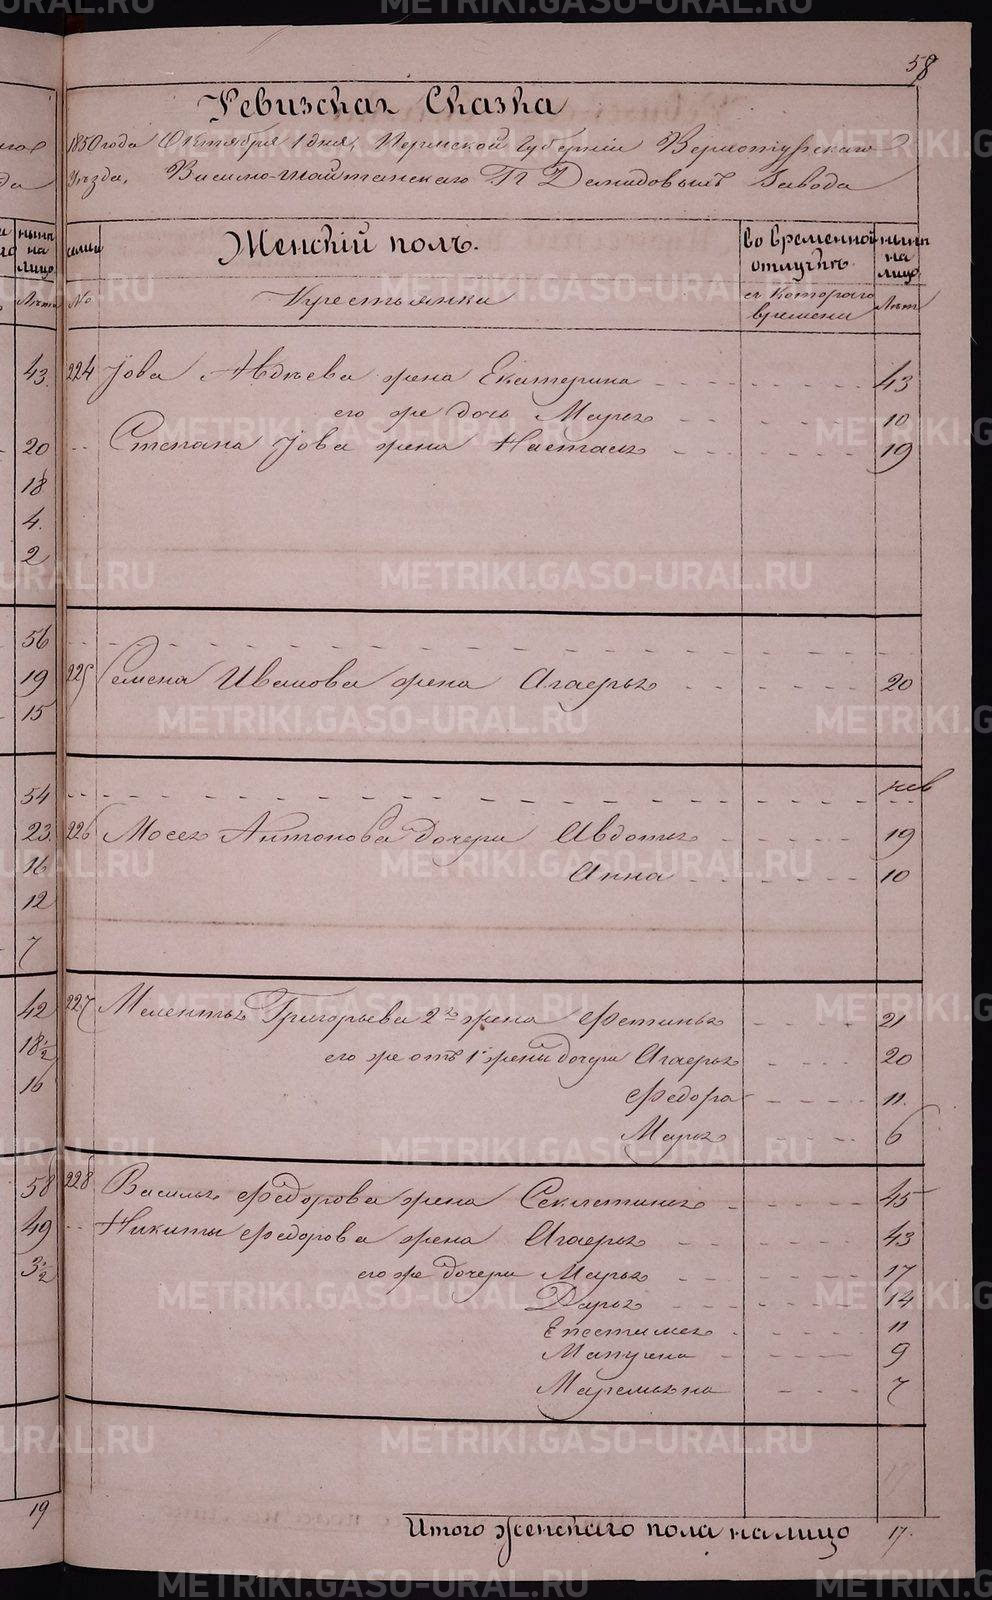 58
Ревизская Сказка
1850 года Октября 1 дня, Пермской Губернии Верхотурскаго
Уѣзда, Висимо-Шайтанскаго Гг Демидовыхъ Завода
семьи
Женскій полъ.
во временной отлучкѣ
нынѣ на лицо
№
Крестьянки
съ котораго времени
Лѣта
43
224 Іова Авдѣева жена Екатерина 43
его же дочь Марья 10
20 Степана Іова жена Настасья 19
18
4.
2
56
19 225 Семена Иванова жена Агафья 20
15
54
23. 226 Мосея Антонова дочери Авдотья 19
16 Анна 10
12
7
42 227 Мелентья Григорьева 2я жена Фетинья 21
18½ его же отъ 1й жены дочери Агафья 20
16 Федора 11.
Марья 6
58 228 Василья Федорова жена Секлетинья 45
49 Никиты Федорова жена Агафья 43
3½ его же дочери Марья 17
Дарья 14
Епестимея 11
Матрена 9
Маремьяна 7
19
Итого женскаго пола налицо 17.
METRIKI.GASO-URAL.RU